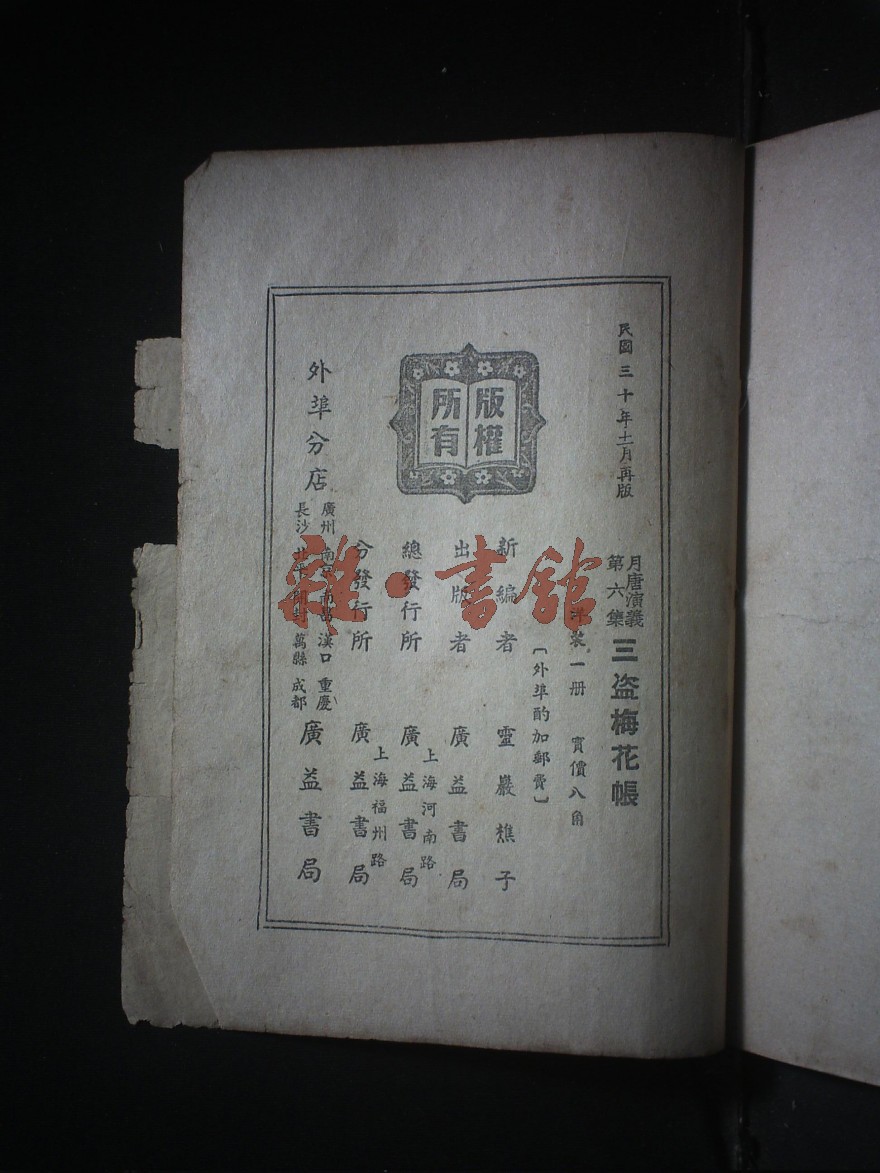 民國三十年十一月再版
月唐演義
第六集
三盜梅花帳
洋裝一册 實價八角
〔外埠酌加郵費〕
版權
所有
新編者 靈巖樵子
出版者 廣益書局
總發行所 上海河南路 廣益書局
分發行所 上海福州路 廣益書局
外埠分店
廣州 南京 南昌 漢口 重慶
長沙 北平 開封 萬縣 成都
廣益書局
雜·書館